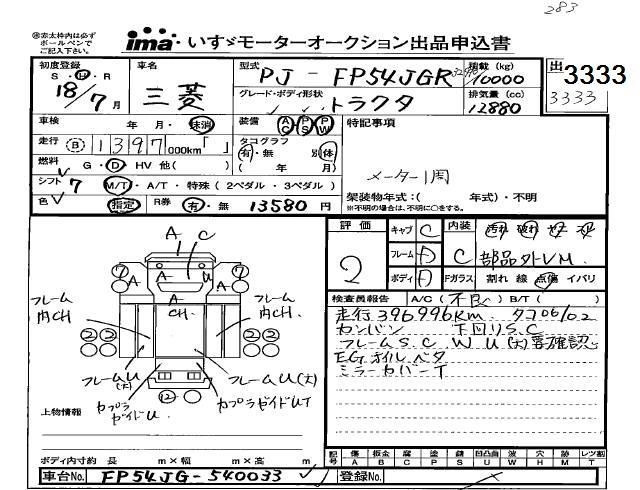 283
㊟赤太枠内は必ず
ボールペンで
ご記入下さい。
ima・いすゞモーターオークション出品申込書
初度登録
S・H・R
18/7月
車名
三菱
型式
PJ-FP54JGR
グレード・ボディ形状
トラクタ
積載 (kg)
10000
排気量 (cc)
12880
出
3333
3333
車検
年・月・抹消
装備
AC PS PW
特記事項
メーター1周
走行
B 1397 000km「 」
タコグラフ
有・無 別体
( 年 月)
燃料
G・D・HV 他( )
シフト 7 M/T・A/T・特殊(2ペダル・3ペダル)
架装物年式:( 年式)・不明
※不明の場合は、不明に○をする。
色 指定 R券 有・無 13580 円
評価
2
キャブ C
フレーム D
ボディ D
内装
C
汚れ 破れ
部品外VM.
Fガラス 割れ 線 点傷 イバリ
検査員報告 A/C(不良) B/T( )
走行396996Km. タコ06/02
カンバン 下回りS.C
フレームS.C W U(大)要確認
EGオイルベタ
ミラーカバーT
A C
7 7
A A U A
A
CH
フレーム
内CH
フレーム
内CH
2 2 2 2
フレームU
(大)
フレームU(大)
カプラ
ガイドU
カプラガイドUT
12
上物情報
ボディ内寸約 長 m×幅 m×高 m
記号 傷 A 板金 B 腐 C 塗 P 錆 S 凹凸曲 U 波 W 穴 H 跡 M レツ割 T
車台No. FP54JG-540033
登録No.